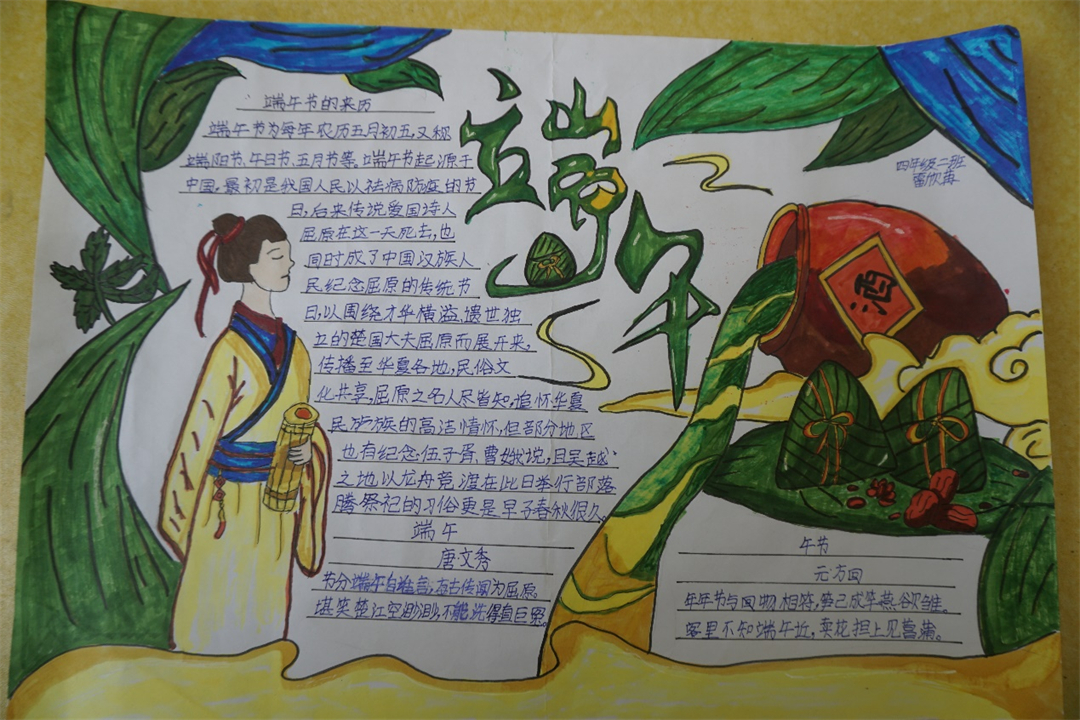 端午节的来历
端午节为每年农历五月初五,又称
端阳节、午日节、五月节等。端午节起源于
中国,最初是我国人民以祛病防疫的节
日,后来传说爱国诗人
屈原在这一天死去,也
同时成了中国汉族人
民纪念屈原的传统节
日,以围绕才华横溢、遗世独
立的楚国大夫屈原而展开来,
传播至华夏各地,民俗文
化共享,屈原之名人尽皆知,追怀华夏
民族的高洁情怀,但部分地区
也有纪念伍子胥、曹娥说,且吴越
之地以龙舟竞渡在此日举行部落
腾祭祀的习俗更是早于春秋很久。
端午
唐·文秀
节分端午自谁言,万古传闻为屈原。
堪笑楚江空渺渺,不能洗得直臣冤。
端午
四年级二班
欣
酒
午节
元·方回
年年节与回物相符,笋已成竿燕欲雏。
客里不知端午近,卖花担上见菖蒲。